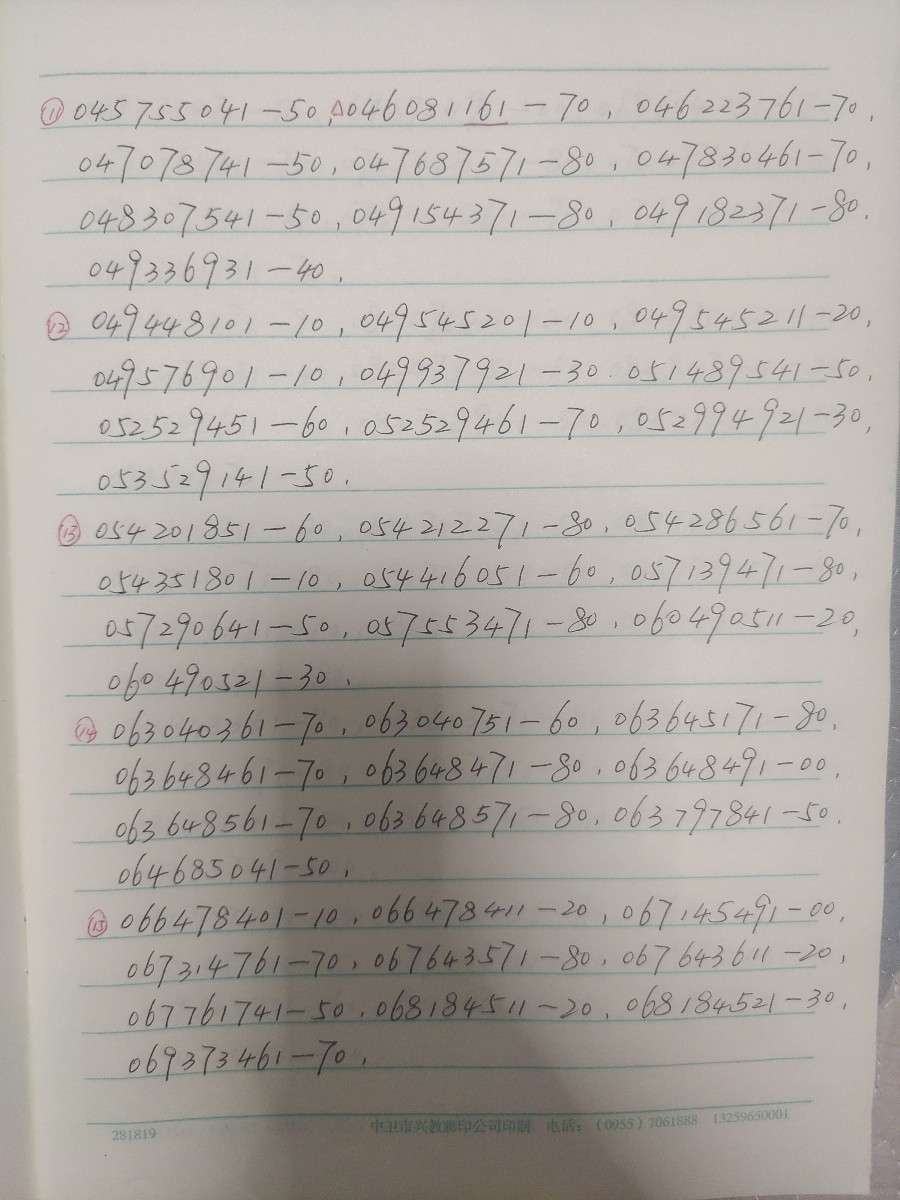 ⑪ 045755041-50,△046081161-70, 046223761-70,
047078741-50, 047687571-80, 047830461-70,
048307541-50, 049154371-80, 049182371-80.
049336931-40.
⑫ 049448101-10, 049545201-10, 049545211-20,
049576901-10, 049937921-30. 051489541-50,
052529451-60, 052529461-70, 052994921-30,
053529141-50.
⑬ 054201851-60, 054212271-80, 054286561-70,
054351801-10, 054416051-60, 057139471-80,
057290641-50, 057553471-80, 060490511-20,
060490521-30,
⑭ 063040361-70, 063040751-60, 063645171-80,
063648461-70, 063648471-80, 063648491-00,
063648561-70, 063648571-80, 063797841-50.
064685041-50,
⑮ 066478401-10, 066478411-20, 067145491-00,
067314761-70, 067643571-80, 067643611-20,
067761741-50, 068184511-20, 068184521-30,
069373461-70,
281819 中卫市兴教彩印公司印制 电话:(0955)7061888 13259650001